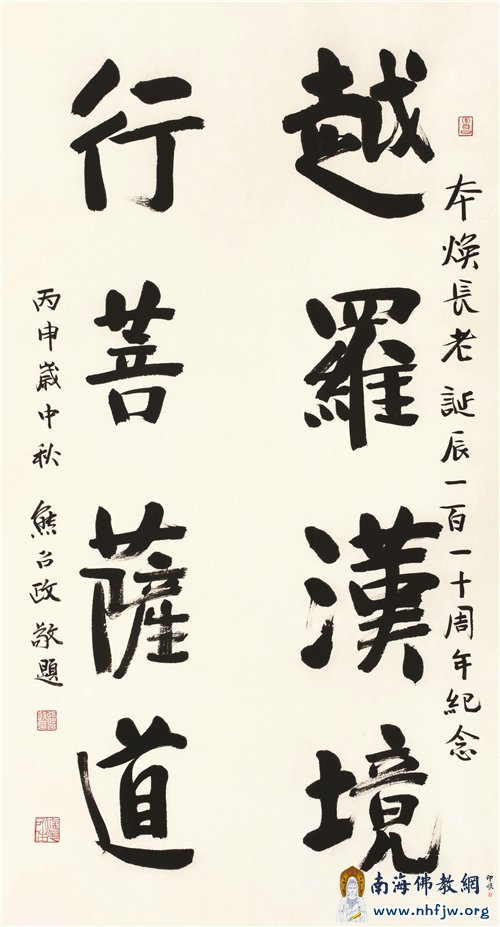 本焕長老誕辰一百一十周年纪念
越羅漢境
行菩薩道
丙申歲中秋 熊召政敬題
南海佛教網
www.nhfjw.org